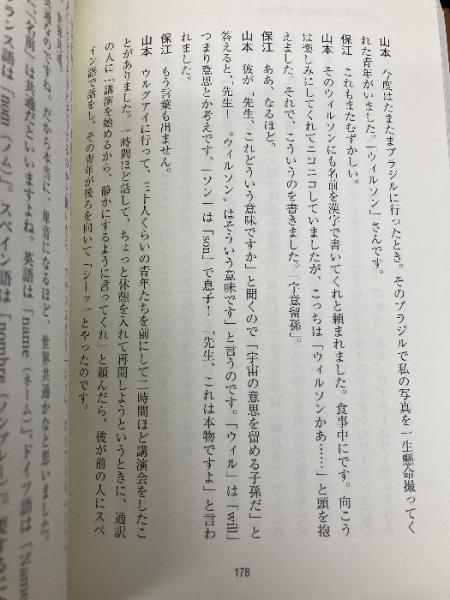 山本　今度はたまたまブラジルに行ったとき。そのブラジルで私の写真を一生懸命撮ってく
れた青年がいました。「ウィルソン」さんです。
保江　これもまたむずかしい。
山本　そのウィルソンにも名前を漢字で書いてくれと頼まれました。食事中にです。向こう
は楽しみにしてくれてニコニコしていましたが、こっちは「ウィルソンかあ……」と頭を抱
えました。それで、こういうのを書きました。「宇意留孫」。
保江　ああ、なるほど。
山本　彼が、「先生、これどういう意味ですか」と聞くので「宇宙の意思を留める子孫だ」と
答えると、「先生！　〝ウィルソン〟はそういう意味です」と言うのです。「ウィル」は「will」
つまり意思とか考えです。「ソン」は「son」で息子！　「先生、これは本物ですよ」と言わ
れました。
保江　もう言葉も出ません。
山本　ウルグアイに行って、三十人くらいの青年たちを前にして二時間ほど講演会をしたこ
とがありました。一時間ほど話して、ちょっと休憩を入れて再開しようというときに、通訳
の人に「講演を始めるから、静かにするように言ってくれ」と頼んだら、彼が前の人にスペ
イン語で話をし、その青年が後ろを向いて「シーッ」とやったのです。
178
なのですね。だから本当に、単音になるほど、世界共通かなと思いました。
「名前」は共通だといいますよね。英語は「name（ネーム）」、ドイツ語は「Name
ランス語は「nom（ノム）」。スペイン語は「nombre（ノンブレ